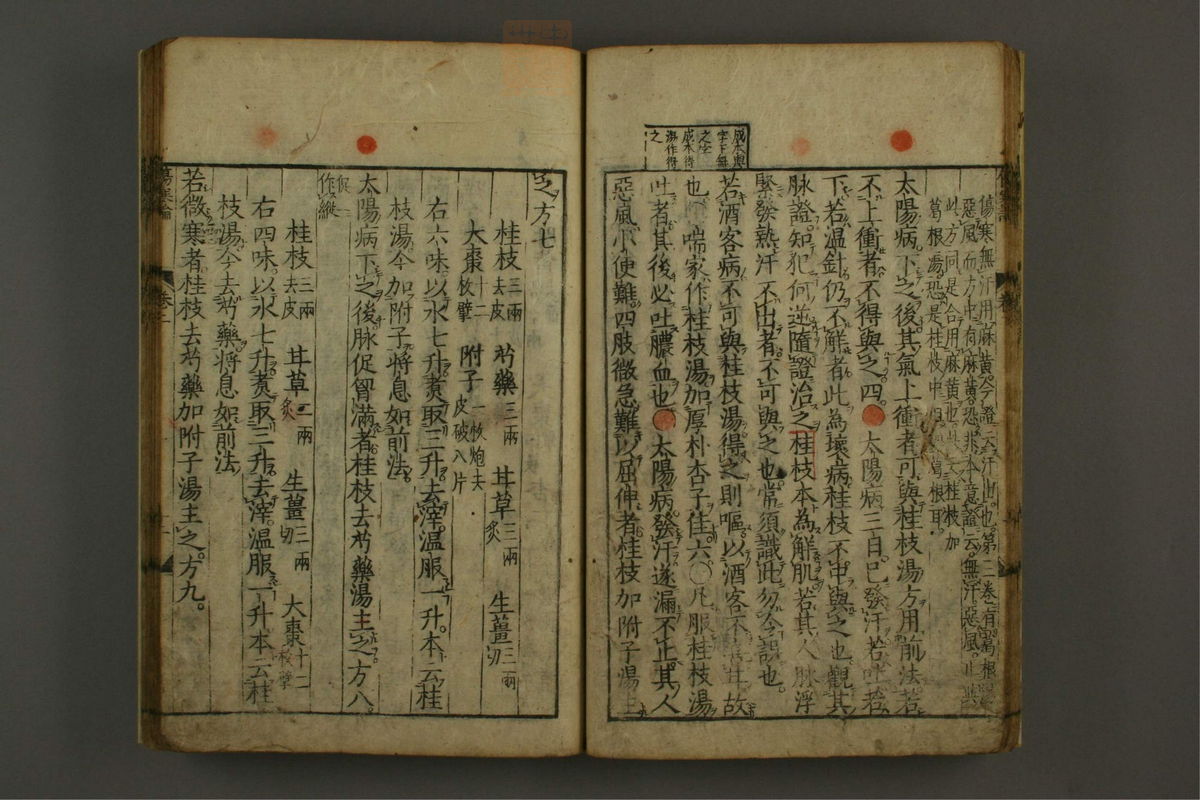 傷寒無汗用麻黃今證云汗出
惡風而方中有麻黃恐非本意
此方同是合用麻黃也此云桂枝加
葛根湯恐是桂枝中但加葛根耳
太陽病下之後其氣上衝者可與桂枝湯方用前法若
不上衝者不得與之四 太陽病三日已發汗若吐若
下若溫針仍不解者此為壞病桂枝不中與之也觀其
脉證知犯何逆隨證治之桂枝本為解肌若其人脉浮
緊發熱汗不出者不可與之也常須識此勿令誤也
若酒客病不可與桂枝湯得之則嘔以酒客不故
也 喘家作桂枝湯加厚朴杏子佳六 凡服桂枝湯
吐者其後必吐膿血也 太陽病發汗遂漏不止其人
惡風小便難四肢微急難以屈伸者桂枝加附子湯主
成本與
字下無
之字
成本得
湯作得
之
之方七
桂枝三兩去皮 芍藥三兩 甘草三兩炙 生薑三兩切
大棗十二枚擘 附子一枚炮去皮破八片
右六味以水七升煑取三升去滓溫服一升本云桂
枝湯今加附子將息如前法
太陽病下之後脉促胷滿者桂枝去芍藥湯主之方八
促一作縱
桂枝三兩去皮 甘草二兩炙 生薑三兩切 大棗十二枚擘
右四味以水七升煑取三升去滓溫服一升本云桂
枝湯今去芍藥將息如前法
若微寒者桂枝去芍藥加附子湯主之方九